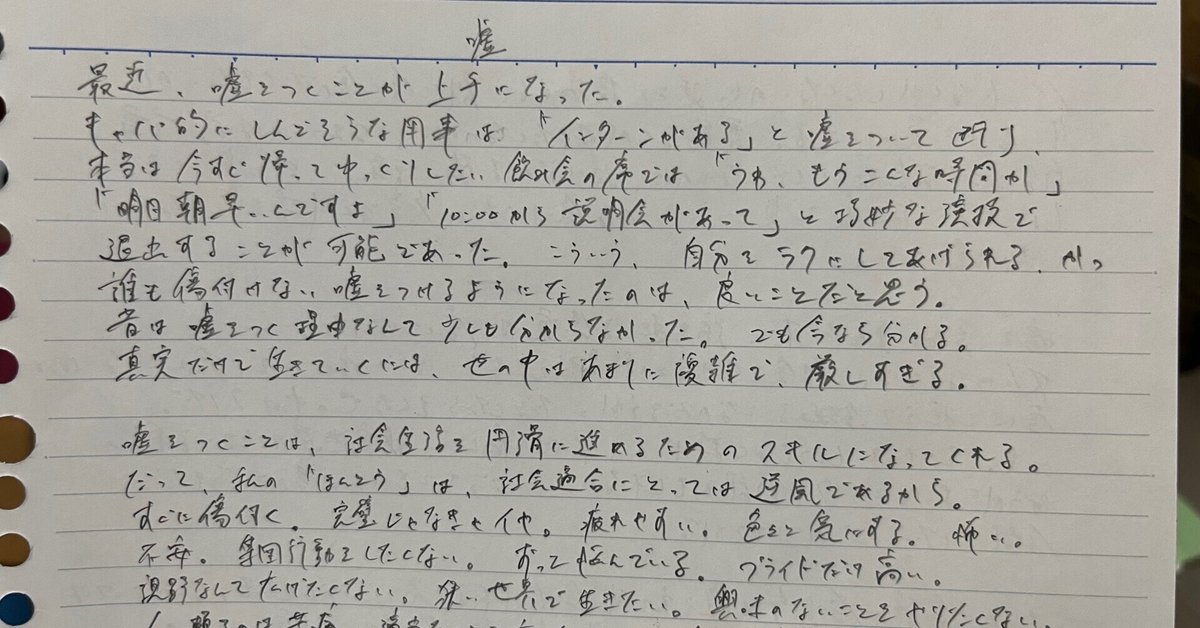 嘘
最近、嘘をつくことが上手になった。
キャパ的にしんどそうな用事は、「インターンがある」と嘘をついて断り、
本当は今すぐ帰ってゆっくりしたい飲み会の席では「うわ、もうこんな時間か」
「明日朝早いんですよ」「10:00から説明会があって」と巧妙な演技で
退出することが可能であった。こういう、自分をラクにしてあげられる、かつ
誰も傷付けない嘘をつけるようになったのは、良いことだと思う。
昔は嘘をつく理由なんて少しも分からなかった。でも今なら分かる。
真実だけで生きていくには、世の中はあまりに複雑で、厳しすぎる。
嘘をつくことは、社会生活を円滑に進めるためのスキルになってくれる。
だって、私の「ほんとう」は、社会適合にとっては逆風であるから。
すぐに傷付く。完璧じゃなきゃイヤ。疲れやすい。色々と気にする。怖い。
不安。集団行動をしたくない。ずっと悩んでいる。プライドだけ高い。
視野なんて広げたくない。狭い世界で生きたい。興味のないことをやりたくない。